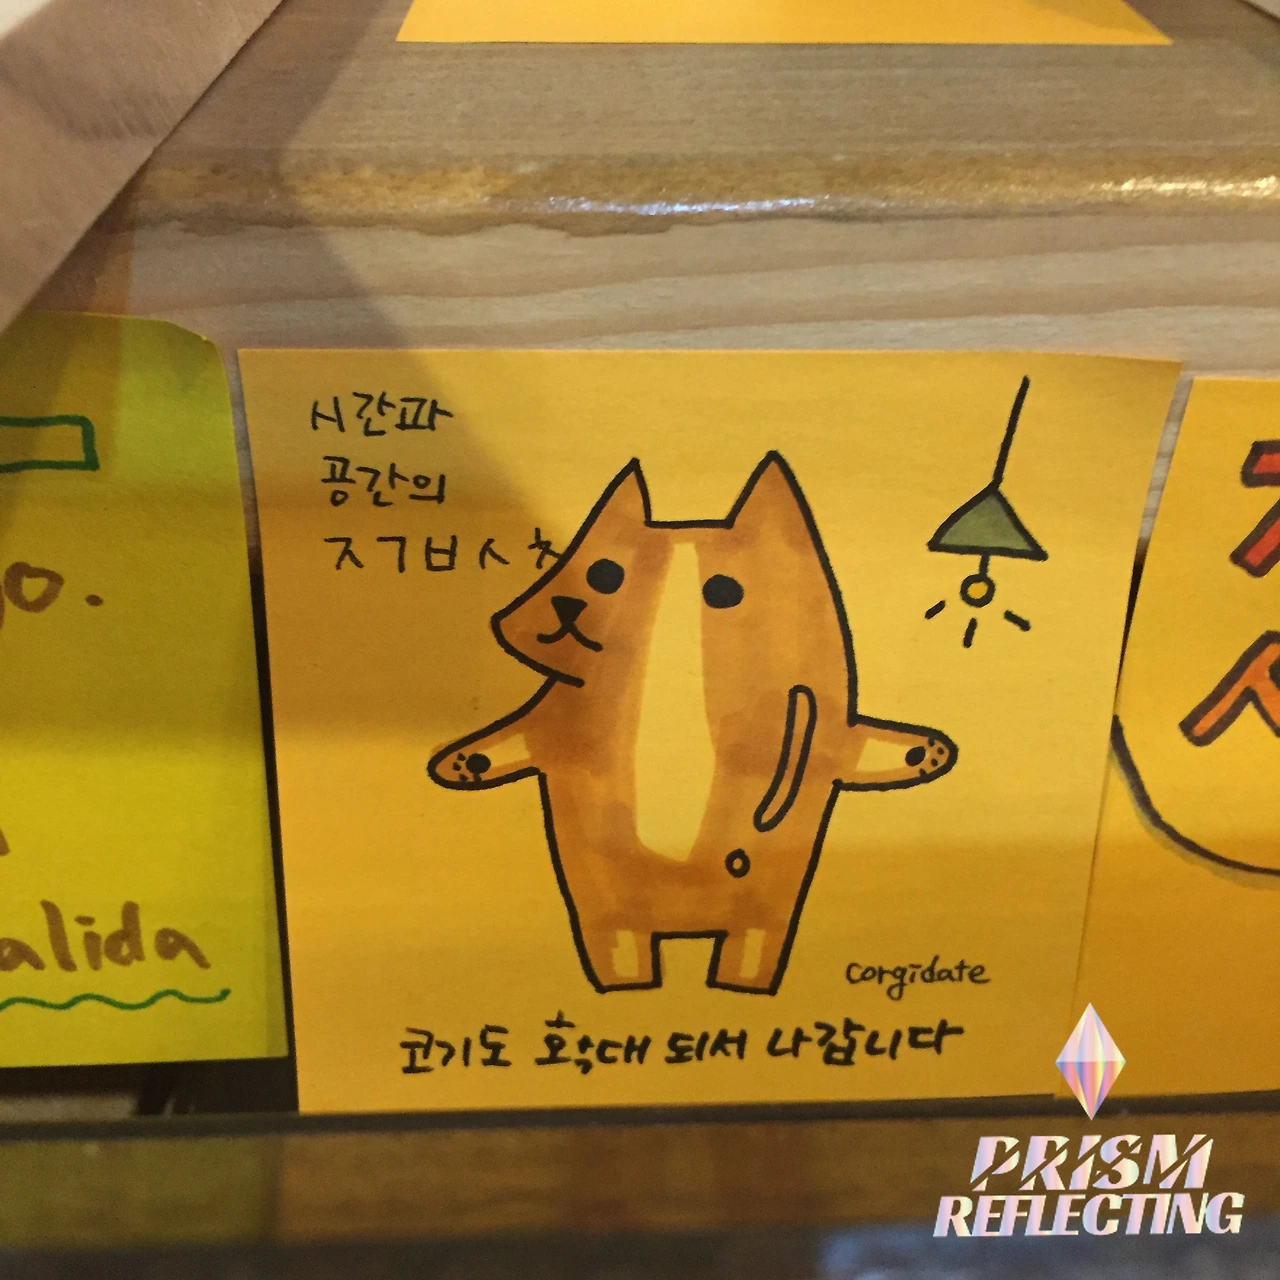 시간과
공간의
ㅈㄱㅂㅅㅊ
corgidate
코기도 확대 되서 나갑니다
alida
PRISM
REFLECTING